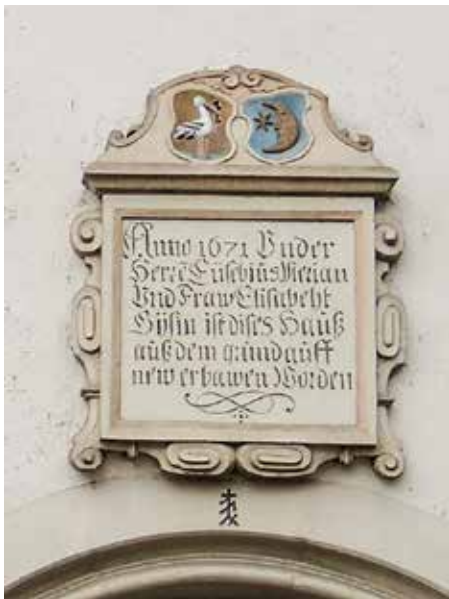 Anno 1671 Under
Herrē Eusebius Merian
Und Fraw Elisabeht
Gÿsin ist dises Hauß
auß dem grund auff
new erbawen Worden